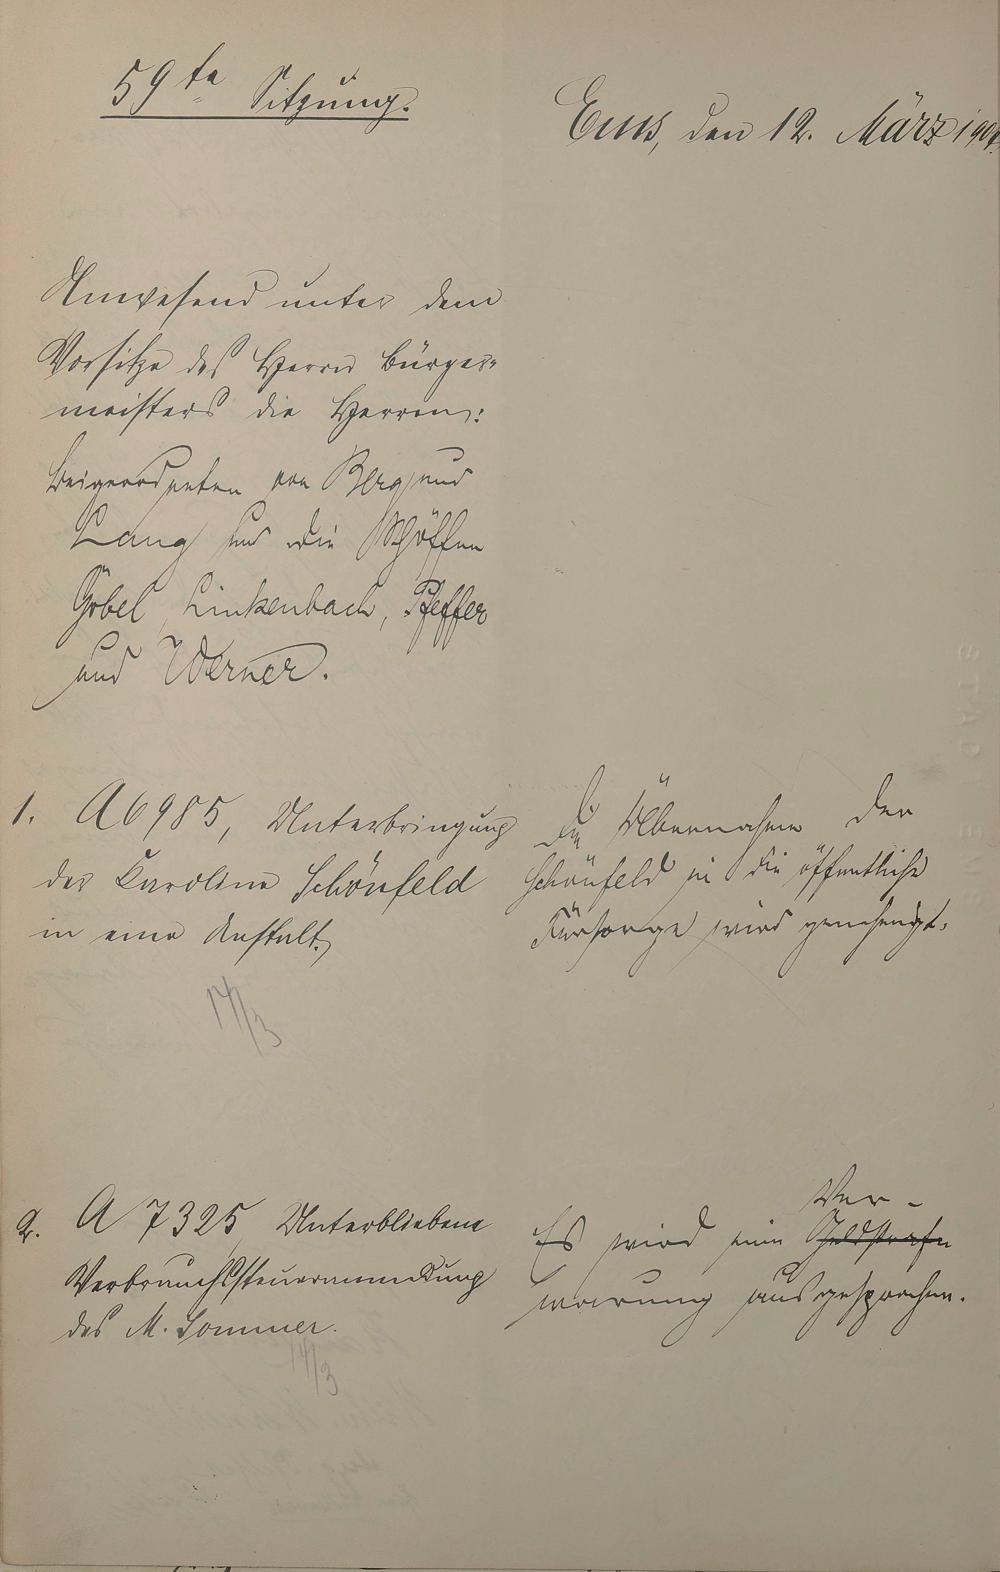 59te Sitzung.
Ems, den 12. März 190
Anwesend unter dem
Vorsitze des Herrn Bürger-
meisters die Herren:
Beigeordneten von Berg und
Lang und die Schöffen
Göbel, Linkenbach, Pfeffer
und Werner.
1. A 6985, Unterbringung
der Karoline Schönfeld
in eine Anstalt.
Die Übernahme der
Schönfeld in die öffentliche
Fürsorge wird genehmigt.
14/3
2. A 7325 Unterbliebene
Verbrauchssteueranmeldung
des M. Sommer.
Ver-
Es wird eine Geldstrafe
warnung ausgesprochen.
14/3
STADT EMS